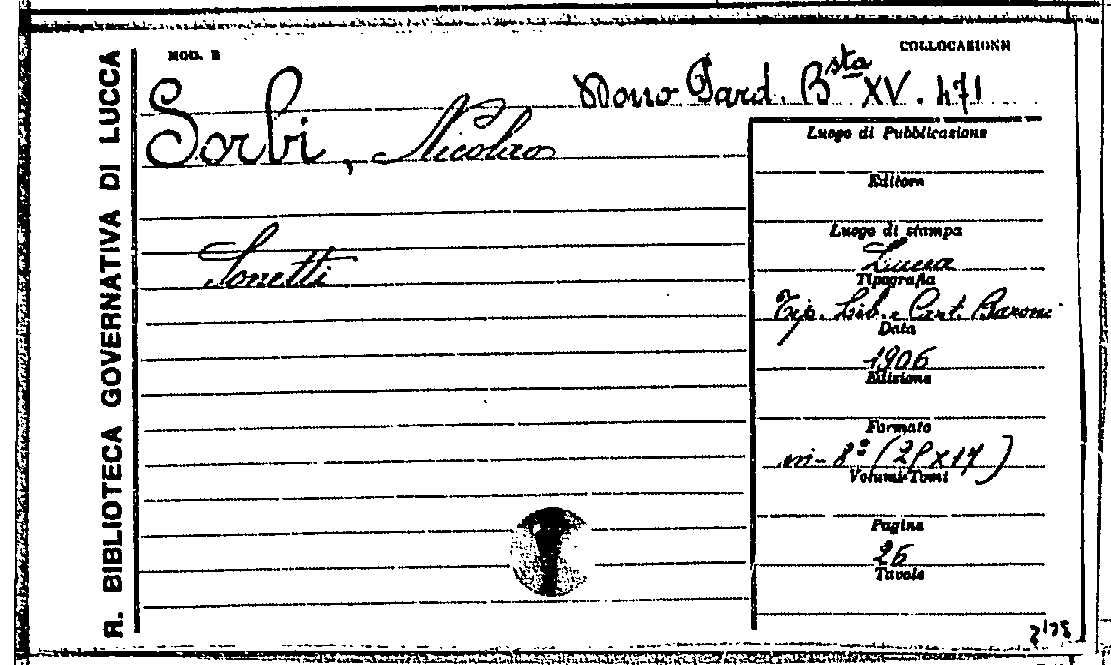 R. BIBLIOTECA GOVERNATIVA DI LUCCA
MOD. B
COLLOCAZIONE
Dono Pard. Bsta XV. 471
Sorbi, Nicolao
Sonetti
Luogo di Pubblicazione
Editore
Luogo di stampa
Lucca
Tipografia
Tip. Lib. e Cart. Baroni
Data
1906
Edizione
Formato
in-8º (25x17)
Volumi-Tomi
Pagine
26
Tavole